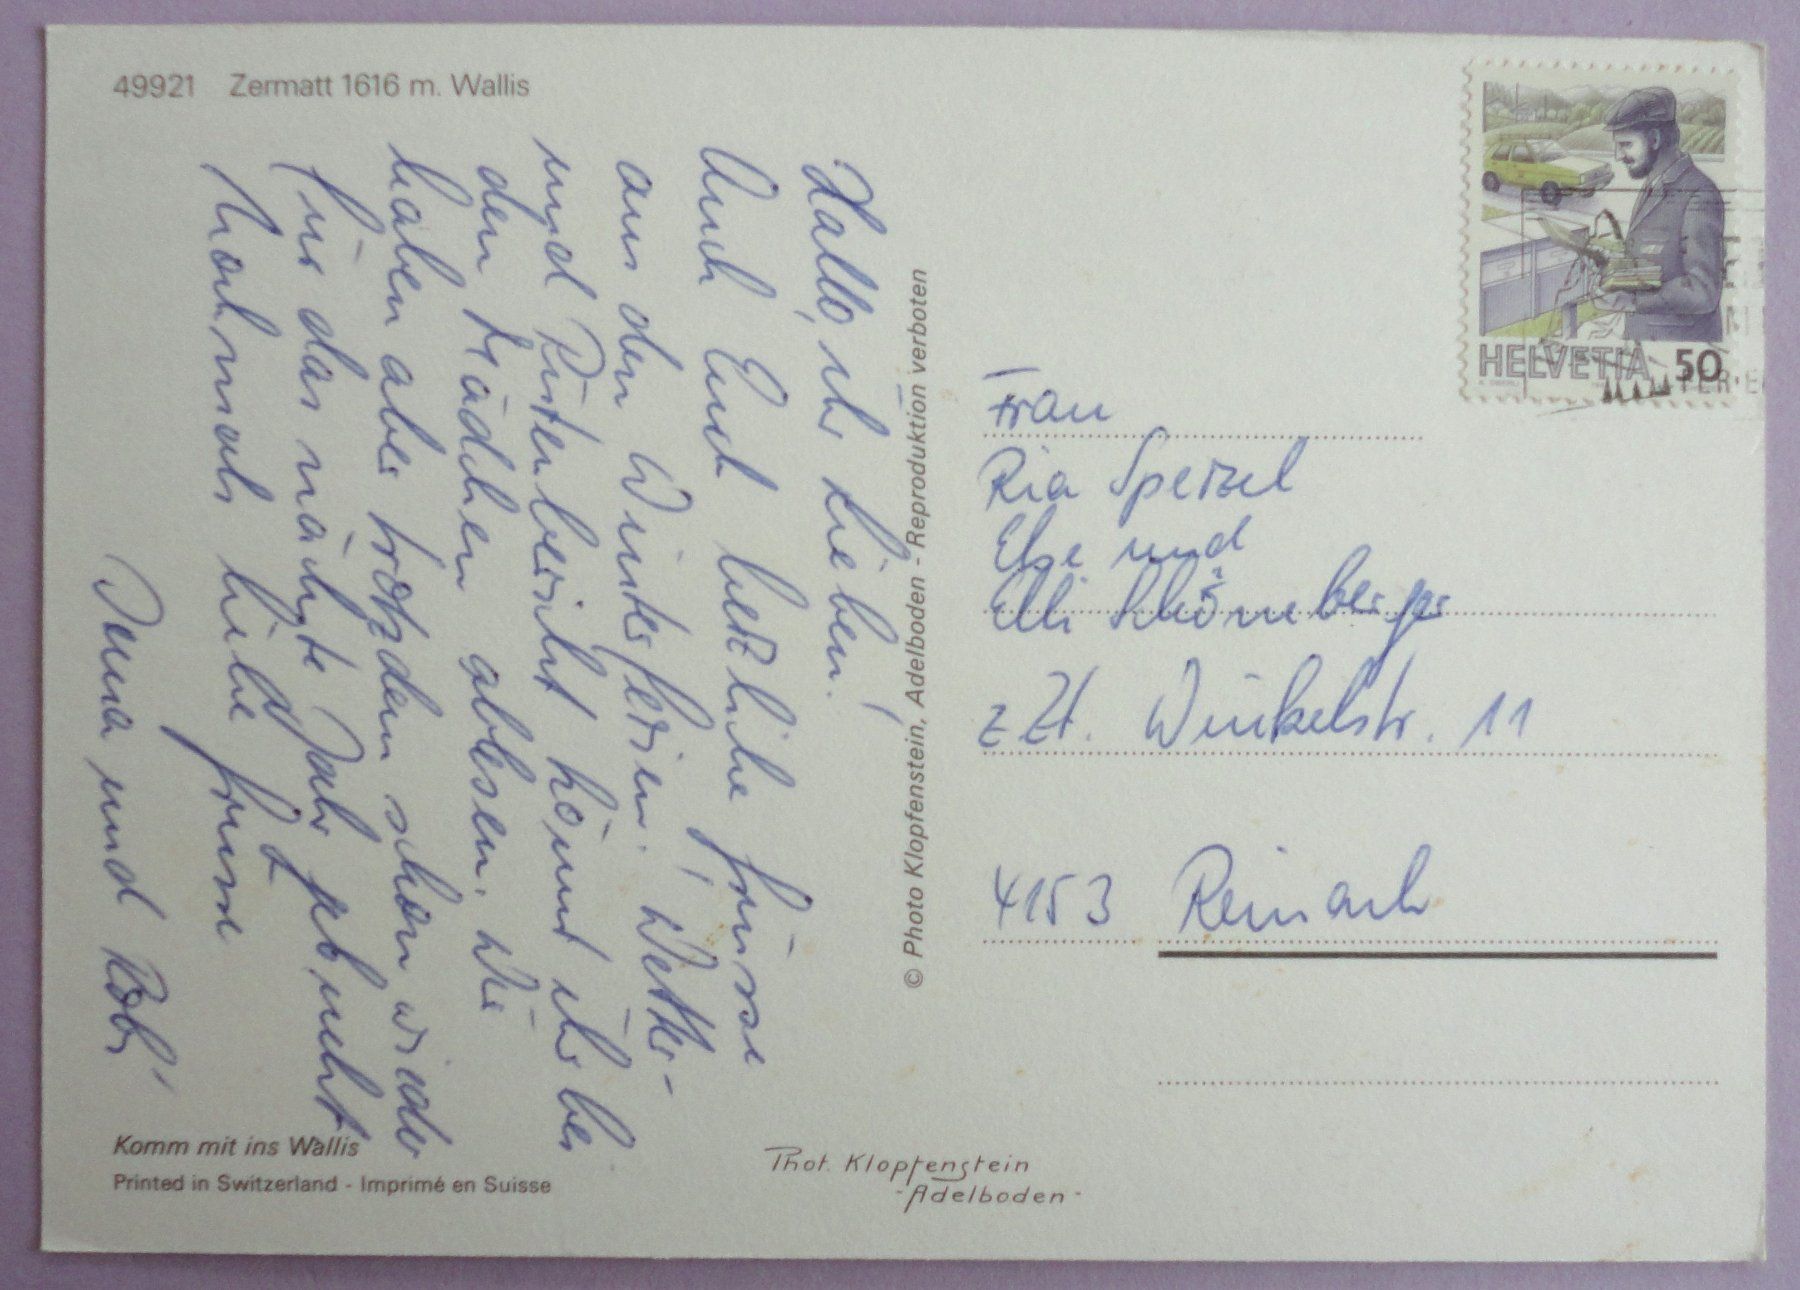 49921 Zermatt 1616 m. Wallis
Hallo, ihr Lieben!
Auch Euch herzliche Grüsse
aus den Winterferien. Wetter-
und Pistenbericht könnt ihr bei
den Mädchen ablesen. Wir
haben aber trotzdem schon wieder
für das nächste Jahr gebucht
Nochmals liebe Grüsse
und Rob
Komm mit ins Wallis
Printed in Switzerland - Imprimé en Suisse
© Photo Klopfenstein, Adelboden - Reproduktion verboten
Phot. Klopfenstein
- Adelboden -
HELVETIA 50
Frau
Ria Speizel
Else und
Elli Schöneberger
z Zt. Winkelstr. 11
4153 Reinach